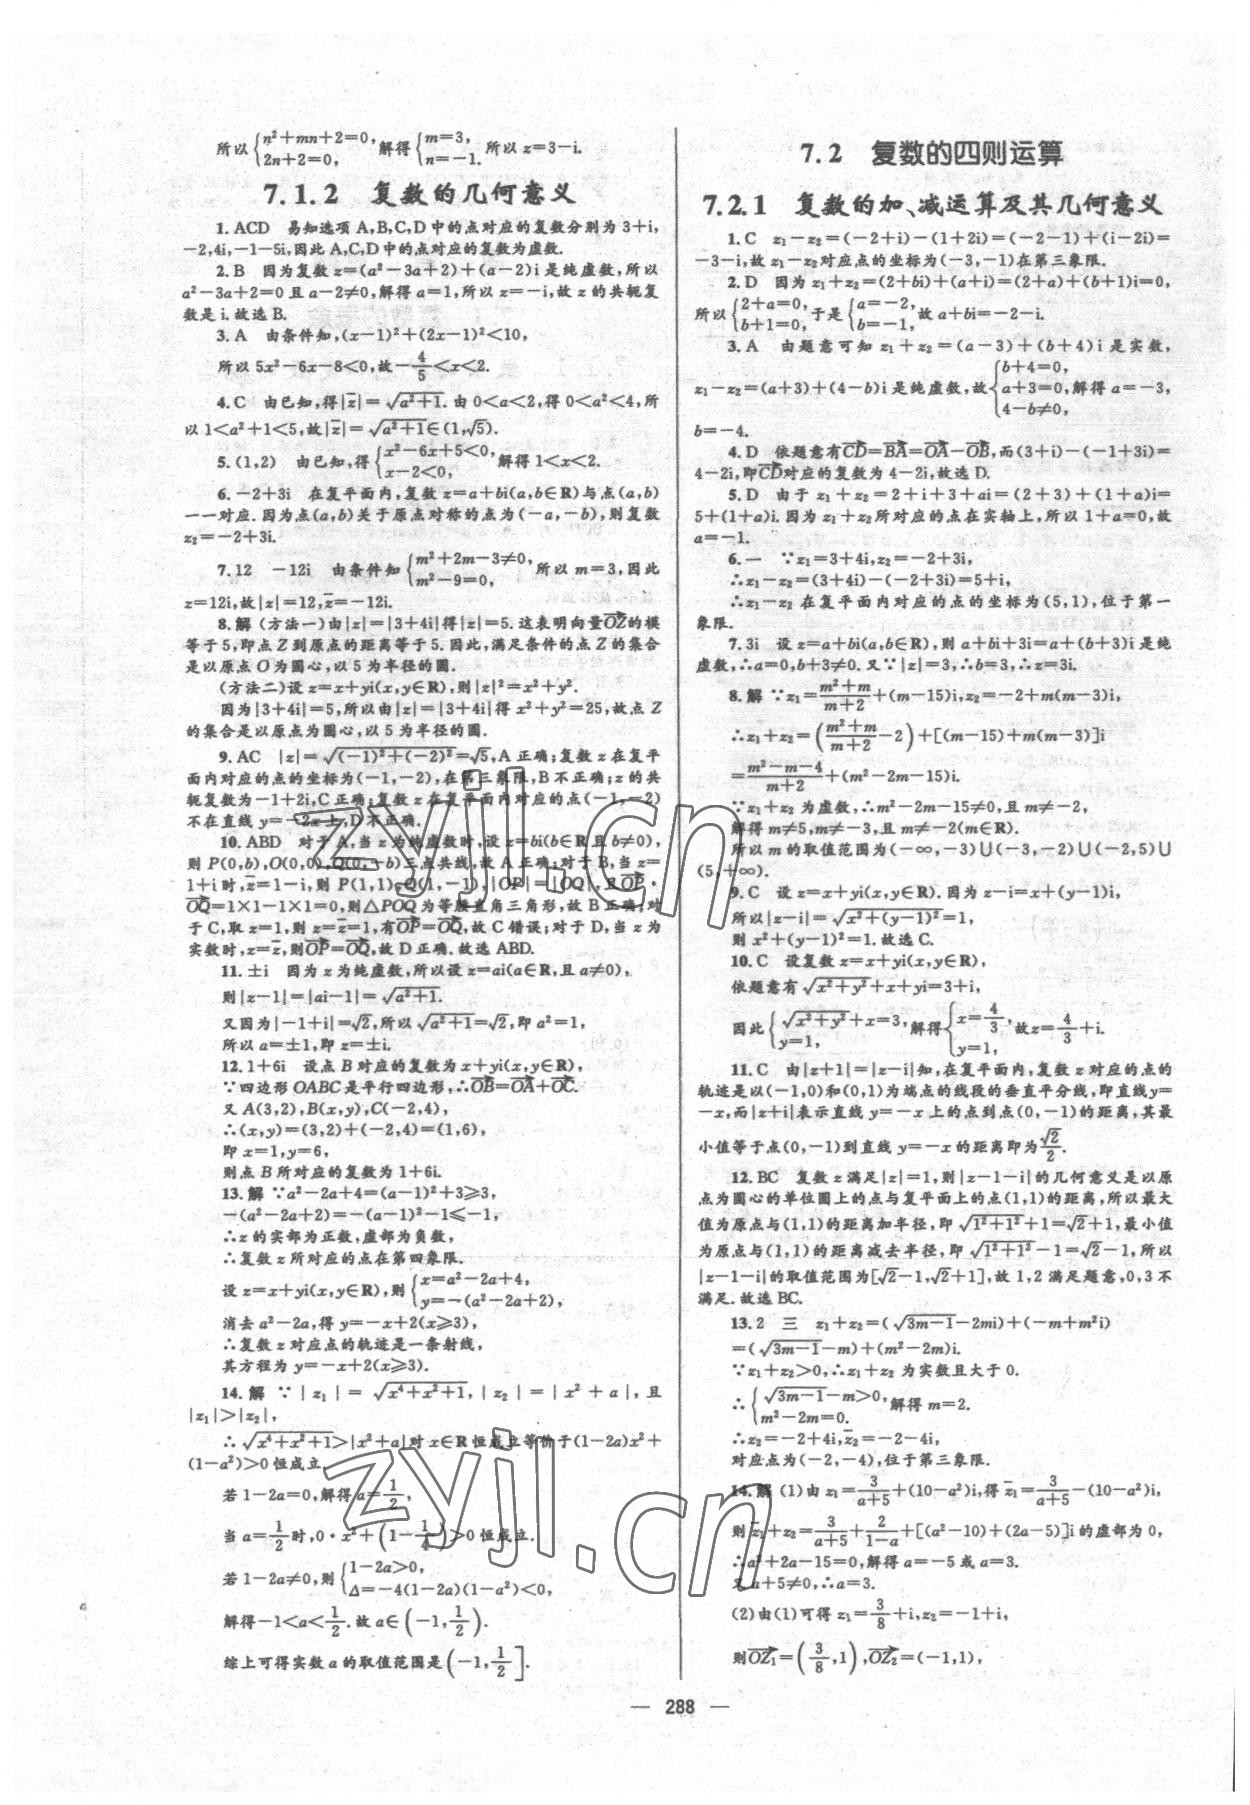 所以{n²+mn+2=0, 2n+2=0, 解得{m=3, n=-1. 所以z=3-i.
7.1.2 复数的几何意义
1.ACD 易知选项A,B,C,D中的点对应的复数分别为3+i,
-2,4i,-1-5i,因此A,C,D中的点对应的复数为虚数.
2.B 因为复数z=(a²-3a+2)+(a-2)i是纯虚数,所以
a²-3a+2=0且a-2≠0,解得a=1,所以z=-i,故z的共轭复
数是i.故选B.
3.A 由条件知,(x-1)²+(2x-1)²<10,
所以5x²-6x-8<0,故-4/5<x<2.
4.C 由已知,得|z̄|=√(a²+1).由0<a<2,得0<a²<4,所
以1<a²+1<5,故|z̄|=√(a²+1)∈(1,√5).
5.(1,2) 由已知,得{x²-6x+5<0, x-2<0, 解得1<x<2.
6.-2+3i 在复平面内,复数z=a+bi(a,b∈R)与点(a,b)
一一对应.因为点(a,b)关于原点对称的点为(-a,-b),则复数
z₂=-2+3i.
7.12 -12i 由条件知{m²+2m-3≠0, m²-9=0, 所以m=3,因此
z=12i,故|z|=12,z̄=-12i.
8.解 (方法一)由|z|=|3+4i|得|z|=5.这表明向量OZ→的模
等于5,即点Z到原点的距离等于5.因此,满足条件的点Z的集合
是以原点O为圆心,以5为半径的圆.
(方法二)设z=x+yi(x,y∈R),则|z|²=x²+y².
因为|3+4i|=5,所以由|z|=|3+4i|得x²+y²=25,故点Z
的集合是以原点为圆心,以5为半径的圆.
9.AC |z|=√((-1)²+(-2)²)=√5,A正确;复数z在复平
面内对应的点的坐标为(-1,-2),在第三象限,B不正确;z的共
轭复数为-1+2i,C正确;复数z在复平面内对应的点(-1,-2)
不在直线y=-2x上,D不正确.
10.ABD 对于A,当z为纯虚数时,设z=bi(b∈R且b≠0),
则P(0,b),O(0,0),Q(0,-b)三点共线,故A正确;对于B,当z=
1+i时,z̄=1-i,则P(1,1),Q(1,-1),|OP|=|OQ|,且OP→·
OQ→=1×1-1×1=0,则△POQ为等腰直角三角形,故B正确;对
于C,取z=1,则z=z̄=1,有OP→=OQ→,故C错误;对于D,当z为
实数时,z=z̄,则OP→=OQ→,故D正确.故选ABD.
11.±i 因为z为纯虚数,所以设z=ai(a∈R,且a≠0),
则|z-1|=|ai-1|=√(a²+1).
又因为|-1+i|=√2,所以√(a²+1)=√2,即a²=1,
所以a=±1,即z=±i.
12.1+6i 设点B对应的复数为x+yi(x,y∈R),
∵四边形OABC是平行四边形,∴OB→=OA→+OC→.
又A(3,2),B(x,y),C(-2,4),
∴(x,y)=(3,2)+(-2,4)=(1,6),
即x=1,y=6,
则点B所对应的复数为1+6i.
13.解 ∵a²-2a+4=(a-1)²+3≥3,
-(a²-2a+2)=-(a-1)²-1≤-1,
∴z的实部为正数,虚部为负数,
∴复数z所对应的点在第四象限.
设z=x+yi(x,y∈R),则{x=a²-2a+4, y=-(a²-2a+2),
消去a²-2a,得y=-x+2(x≥3),
∴复数z对应点的轨迹是一条射线,
其方程为y=-x+2(x≥3).
14.解 ∵|z₁|=√(x⁴+x²+1),|z₂|=|x²+a|,且
|z₁|>|z₂|,
∴√(x⁴+x²+1)>|x²+a|对x∈R恒成立等价于(1-2a)x²+
(1-a²)>0恒成立.
若1-2a=0,解得a=1/2,
当a=1/2时,0·x²+(1-1/4)>0恒成立.
若1-2a≠0,则{1-2a>0, Δ=-4(1-2a)(1-a²)<0,
解得-1<a<1/2.故a∈(-1,1/2).
综上可得实数a的取值范围是(-1,1/2].
7.2 复数的四则运算
7.2.1 复数的加、减运算及其几何意义
1.C z₁-z₂=(-2+i)-(1+2i)=(-2-1)+(i-2i)=
-3-i,故z₁-z₂对应点的坐标为(-3,-1)在第三象限.
2.D 因为z₁+z₂=(2+bi)+(a+i)=(2+a)+(b+1)i=0,
所以{2+a=0, b+1=0, 于是{a=-2, b=-1, 故a+bi=-2-i.
3.A 由题意可知z₁+z₂=(a-3)+(b+4)i是实数,
z₁-z₂=(a+3)+(4-b)i是纯虚数,故{b+4=0, a+3=0, 4-b≠0, 解得a=-3,
b=-4.
4.D 依题意有CD→=BA→=OA→-OB→,而(3+i)-(-1+3i)=
4-2i,即CD→对应的复数为4-2i,故选D.
5.D 由于z₁+z₂=2+i+3+ai=(2+3)+(1+a)i=
5+(1+a)i.因为z₁+z₂所对应的点在实轴上,所以1+a=0,故
a=-1.
6.一 ∵z₁=3+4i,z₂=-2+3i,
∴z₁-z₂=(3+4i)-(-2+3i)=5+i,
∴z₁-z₂在复平面内对应的点的坐标为(5,1),位于第一
象限.
7.3i 设z=a+bi(a,b∈R),则a+bi+3i=a+(b+3)i是纯
虚数,∴a=0,b+3≠0.又∵|z|=3,∴b=3,∴z=3i.
8.解 ∵z₁=(m²+m)/(m+2)+(m-15)i,z₂=-2+m(m-3)i,
∴z₁+z₂=((m²+m)/(m+2)-2)+[(m-15)+m(m-3)]i
=(m²-m-4)/(m+2)+(m²-2m-15)i.
∵z₁+z₂为虚数,∴m²-2m-15≠0,且m≠-2,
解得m≠5,m≠-3,且m≠-2(m∈R).
所以m的取值范围为(-∞,-3)∪(-3,-2)∪(-2,5)∪
(5,+∞).
9.C 设z=x+yi(x,y∈R).因为z-i=x+(y-1)i,
所以|z-i|=√(x²+(y-1)²)=1,
则x²+(y-1)²=1.故选C.
10.C 设复数z=x+yi(x,y∈R),
依题意有√(x²+y²)+x+yi=3+i,
因此{√(x²+y²)+x=3, y=1, 解得{x=4/3, y=1, 故z=4/3+i.
11.C 由|z+1|=|z-i|知,在复平面内,复数z对应的点的
轨迹是以(-1,0)和(0,1)为端点的线段的垂直平分线,即直线y=
-x,而|z+i|表示直线y=-x上的点到点(0,-1)的距离,其最
小值等于点(0,-1)到直线y=-x的距离即为√2/2.
12.BC 复数z满足|z|=1,则|z-1-i|的几何意义是以原
点为圆心的单位圆上的点与复平面上的点(1,1)的距离,所以最大
值为原点与(1,1)的距离加半径,即√(1²+1²)+1=√2+1,最小值
为原点与(1,1)的距离减去半径,即√(1²+1²)-1=√2-1,所以
|z-1-i|的取值范围为[√2-1,√2+1],故1,2满足题意,0,3不
满足.故选BC.
13.2 三 z₁+z₂=(√(3m-1)-2mi)+(-m+m²i)
=(√(3m-1)-m)+(m²-2m)i.
∵z₁+z₂>0,∴z₁+z₂为实数且大于0.
∴{√(3m-1)-m>0, m²-2m=0. 解得m=2.
∴z₂=-2+4i,z̄₂=-2-4i,
对应点为(-2,-4),位于第三象限.
14.解 (1)由z₁=3/(a+5)+(10-a²)i,得z̄₁=3/(a+5)-(10-a²)i,
则z̄₁+z₂=3/(a+5)+2/(1-a)+[(a²-10)+(2a-5)]i的虚部为0,
∴a²+2a-15=0,解得a=-5或a=3.
又a+5≠0,∴a=3.
(2)由(1)可得z₁=3/8+i,z₂=-1+i,
则OZ₁→=(3/8,1),OZ₂→=(-1,1),
— 288 —
zyjl.cn
zyjl.cn